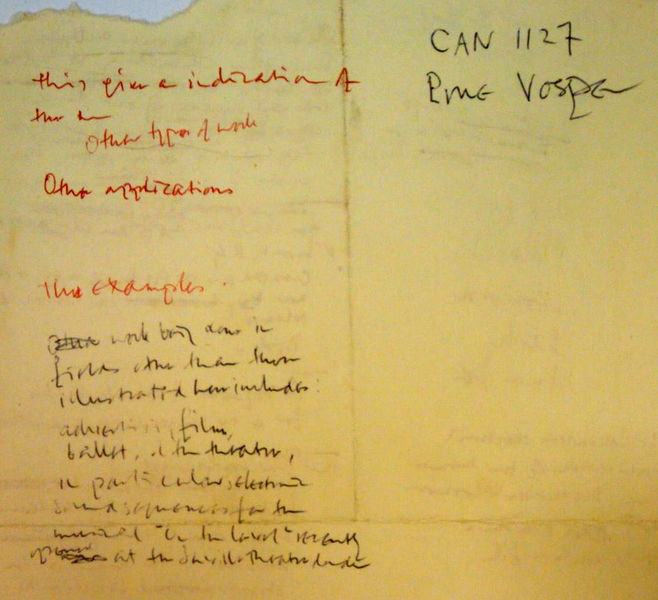 this gives a indication of
the
Other types of work
Other applications
The examples.
work being done in
fields other than those
illustrated here includes:
advertising, film,
ballet, & the theatre,
in particular, electronic
sound sequences for the
musical "On the Level" recently
opened at the Saville Theatre London
CAN 1127
Vosper